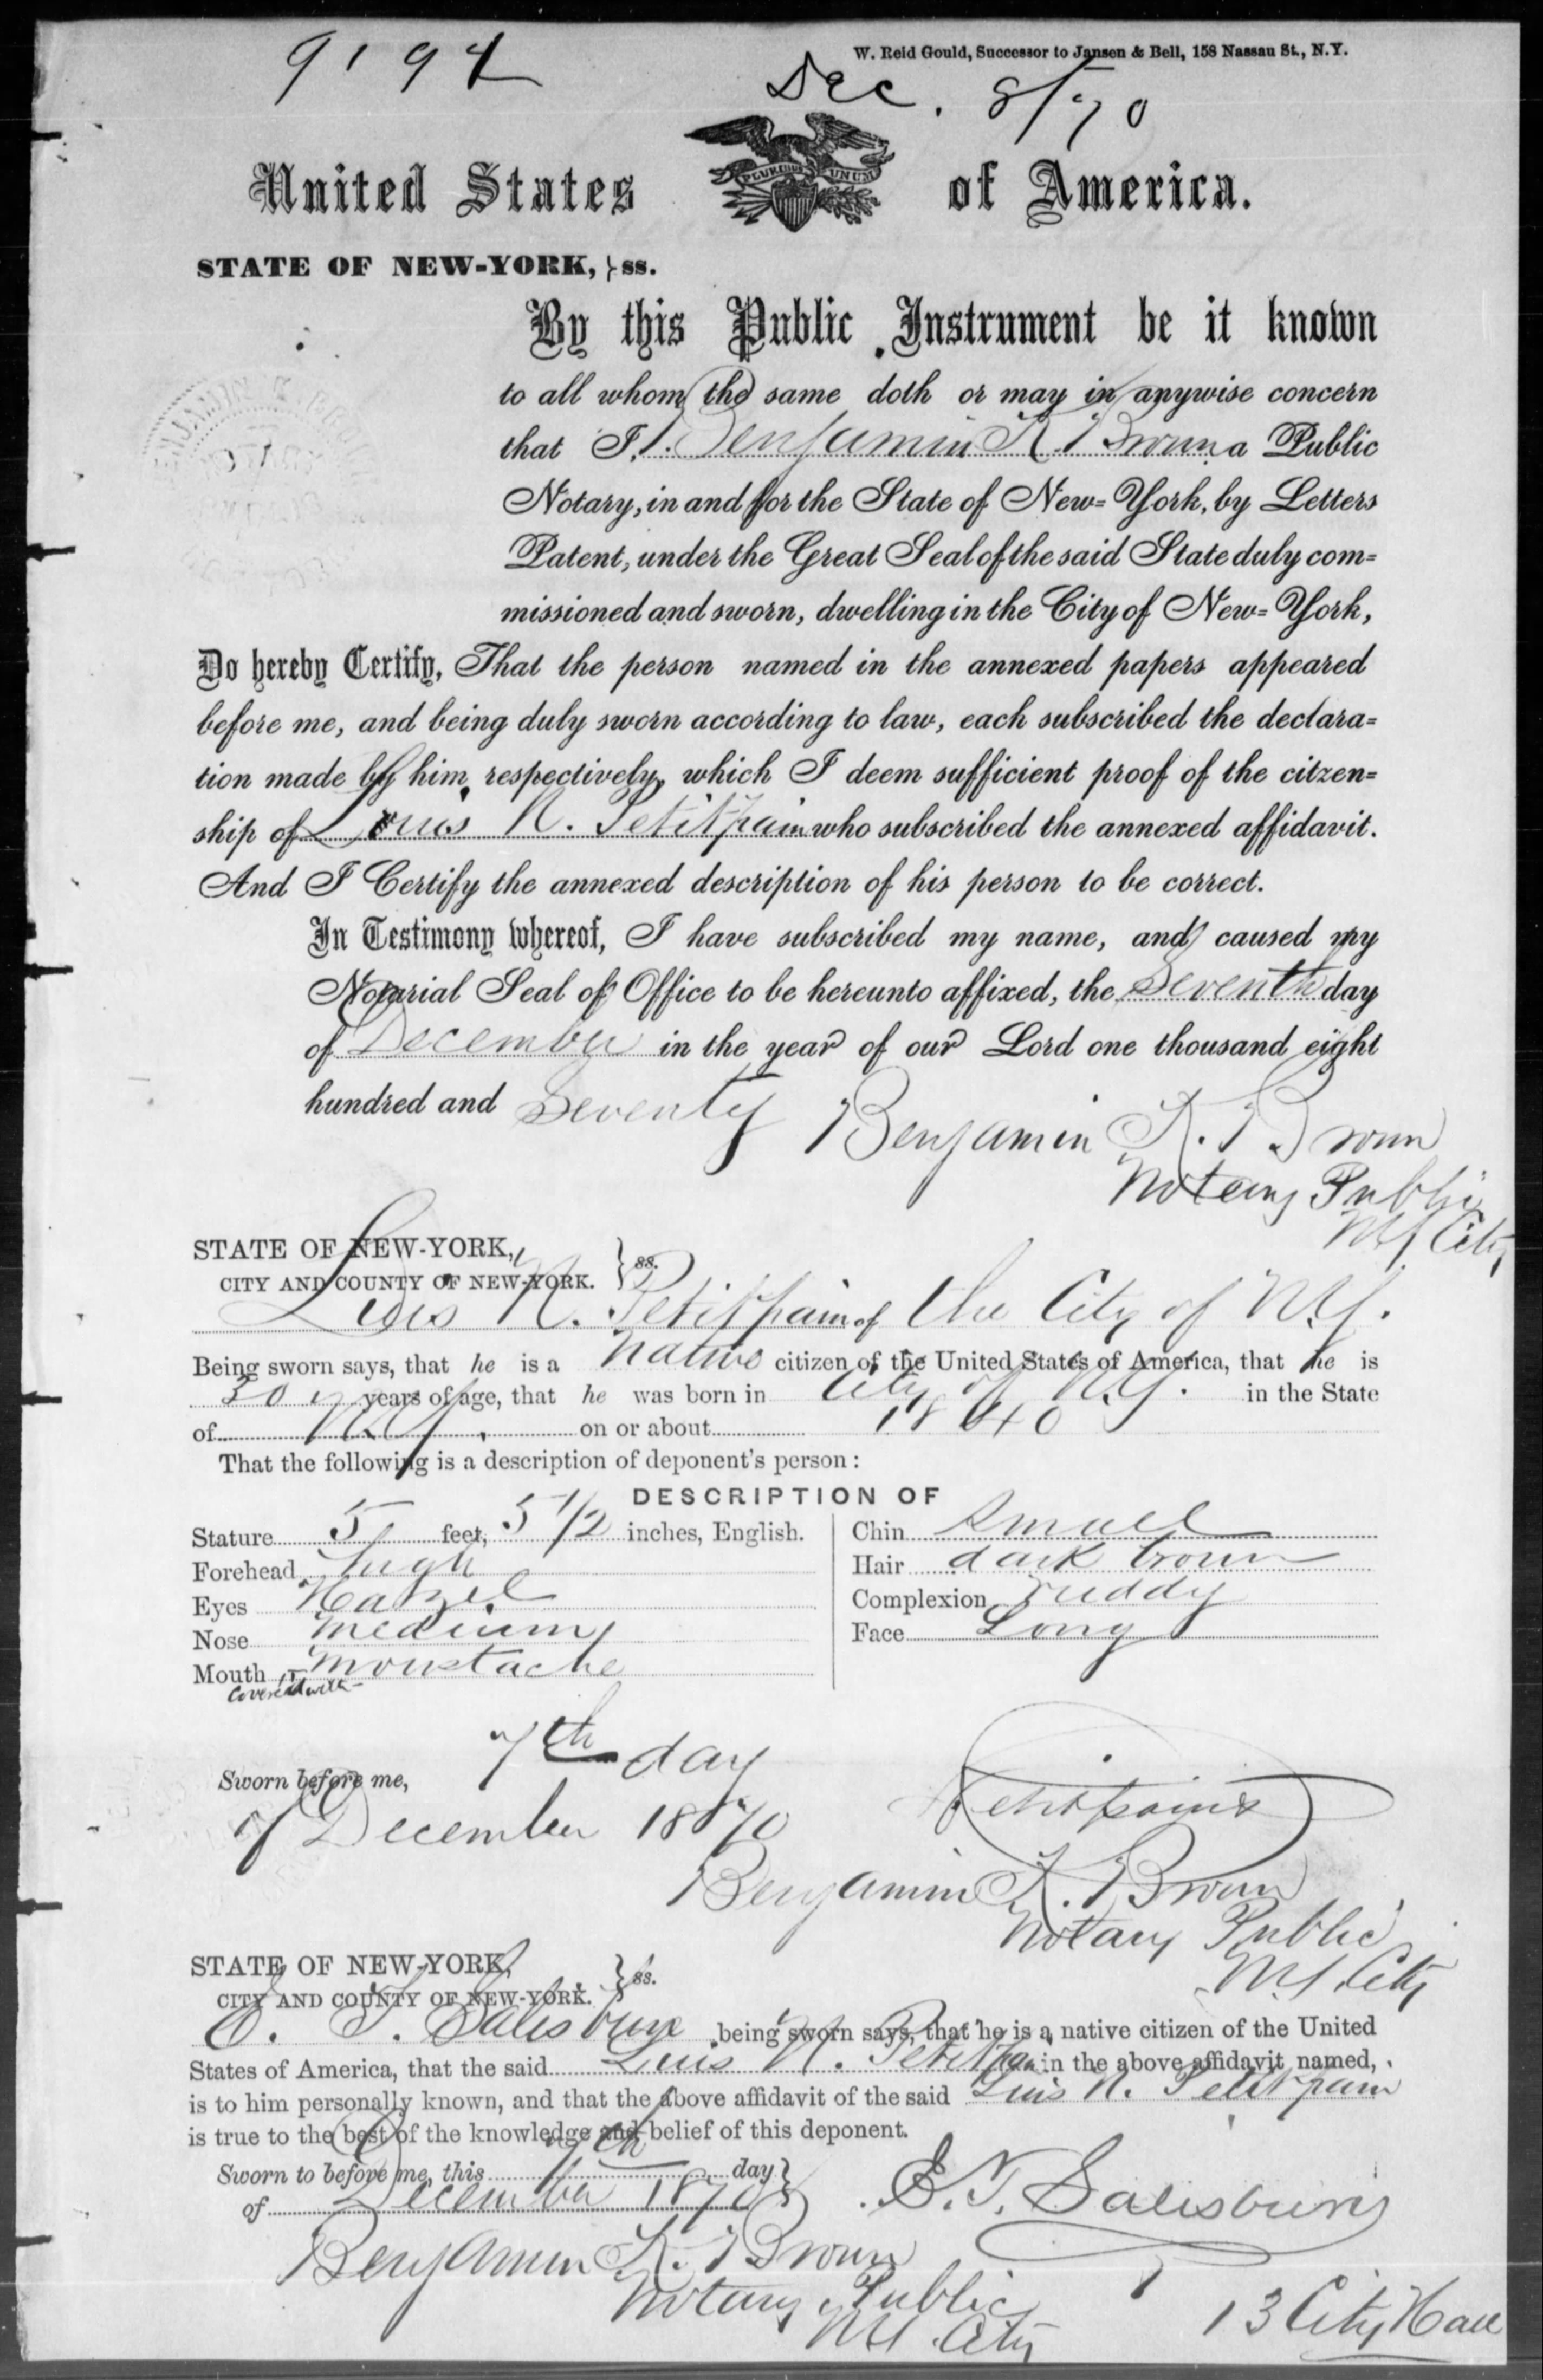 W. Reid Gould, Successor to Jansen & Bell, 158 Nassau St., N.Y.
9194
Dec. 8/70
PLURIBUS UNUM
United States of America.
STATE OF NEW-YORK, } ss.
By this Public Instrument be it known
to all whom the same doth or may in anywise concern
that I, Benjamin K. Brown a Public
Notary, in and for the State of New-York, by Letters
Patent, under the Great Seal of the said State duly com-
missioned and sworn, dwelling in the City of New-York,
Do hereby Certify, That the person named in the annexed papers appeared
before me, and being duly sworn according to law, each subscribed the declara-
tion made by him respectively, which I deem sufficient proof of the citzen-
ship of Louis N. Petitpain who subscribed the annexed affidavit.
And I Certify the annexed description of his person to be correct.
In Testimony whereof, I have subscribed my name, and caused my
Notarial Seal of Office to be hereunto affixed, the Seventh day
of December in the year of our Lord one thousand eight
hundred and Seventy Benjamin K. Brown
Notary Public
NY City
STATE OF NEW-YORK,
CITY AND COUNTY OF NEW-YORK. } ss.
Luis N. Petitpain of the City of N.Y.
Being sworn says, that he is a Native citizen of the United States of America, that he is
30 years of age, that he was born in City of N.Y. in the State
of N.Y. on or about 1840
That the following is a description of deponent's person:
DESCRIPTION OF
Stature 5 feet, 5 1/2 inches, English.
Forehead high
Eyes Hazel
Nose medium
Mouth moustache
Covered with
Chin Small
Hair dark brown
Complexion ruddy
Face Long
Sworn before me, 7th day
of December 1870
Petitpain
Benjamin K. Brown
Notary Public
NY City
STATE OF NEW-YORK,
CITY AND COUNTY OF NEW-YORK. } ss.
E. T. Salisbury being sworn says, that he is a native citizen of the United
States of America, that the said Luis N. Petitpain in the above affidavit named,
is to him personally known, and that the above affidavit of the said Luis N. Petitpain
is true to the best of the knowledge and belief of this deponent.
Sworn to before me, this 7th day }
of December 1870
E. T. Salisbury
Benjamin K. Brown
Notary Public
NY City
13 City Hall